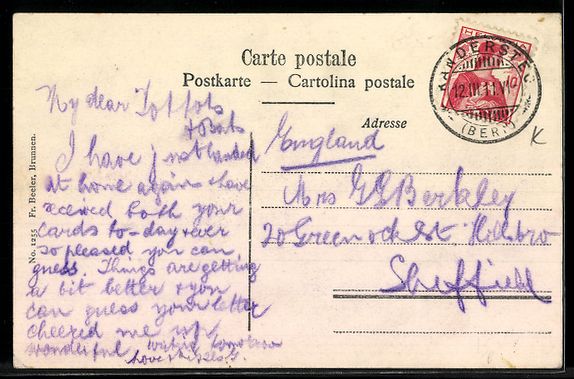 Carte postale
Postkarte — Cartolina postale
Adresse
HELVETIA
10
KANDERSTEG
12.III.11.VI
(BERN)
K
No. 1255 Fr. Beeler, Brunnen.
My dear
I have just landed
at home again & have
received both your
cards to-day & ever
so pleased you can
guess. Things are getting
a bit better & you
can guess your letter
cheered me up
wonderful, write tomorrow
love & kisses G.
England
Mrs GG Berkley
20 Greenock St Hillsbro
Sheffield